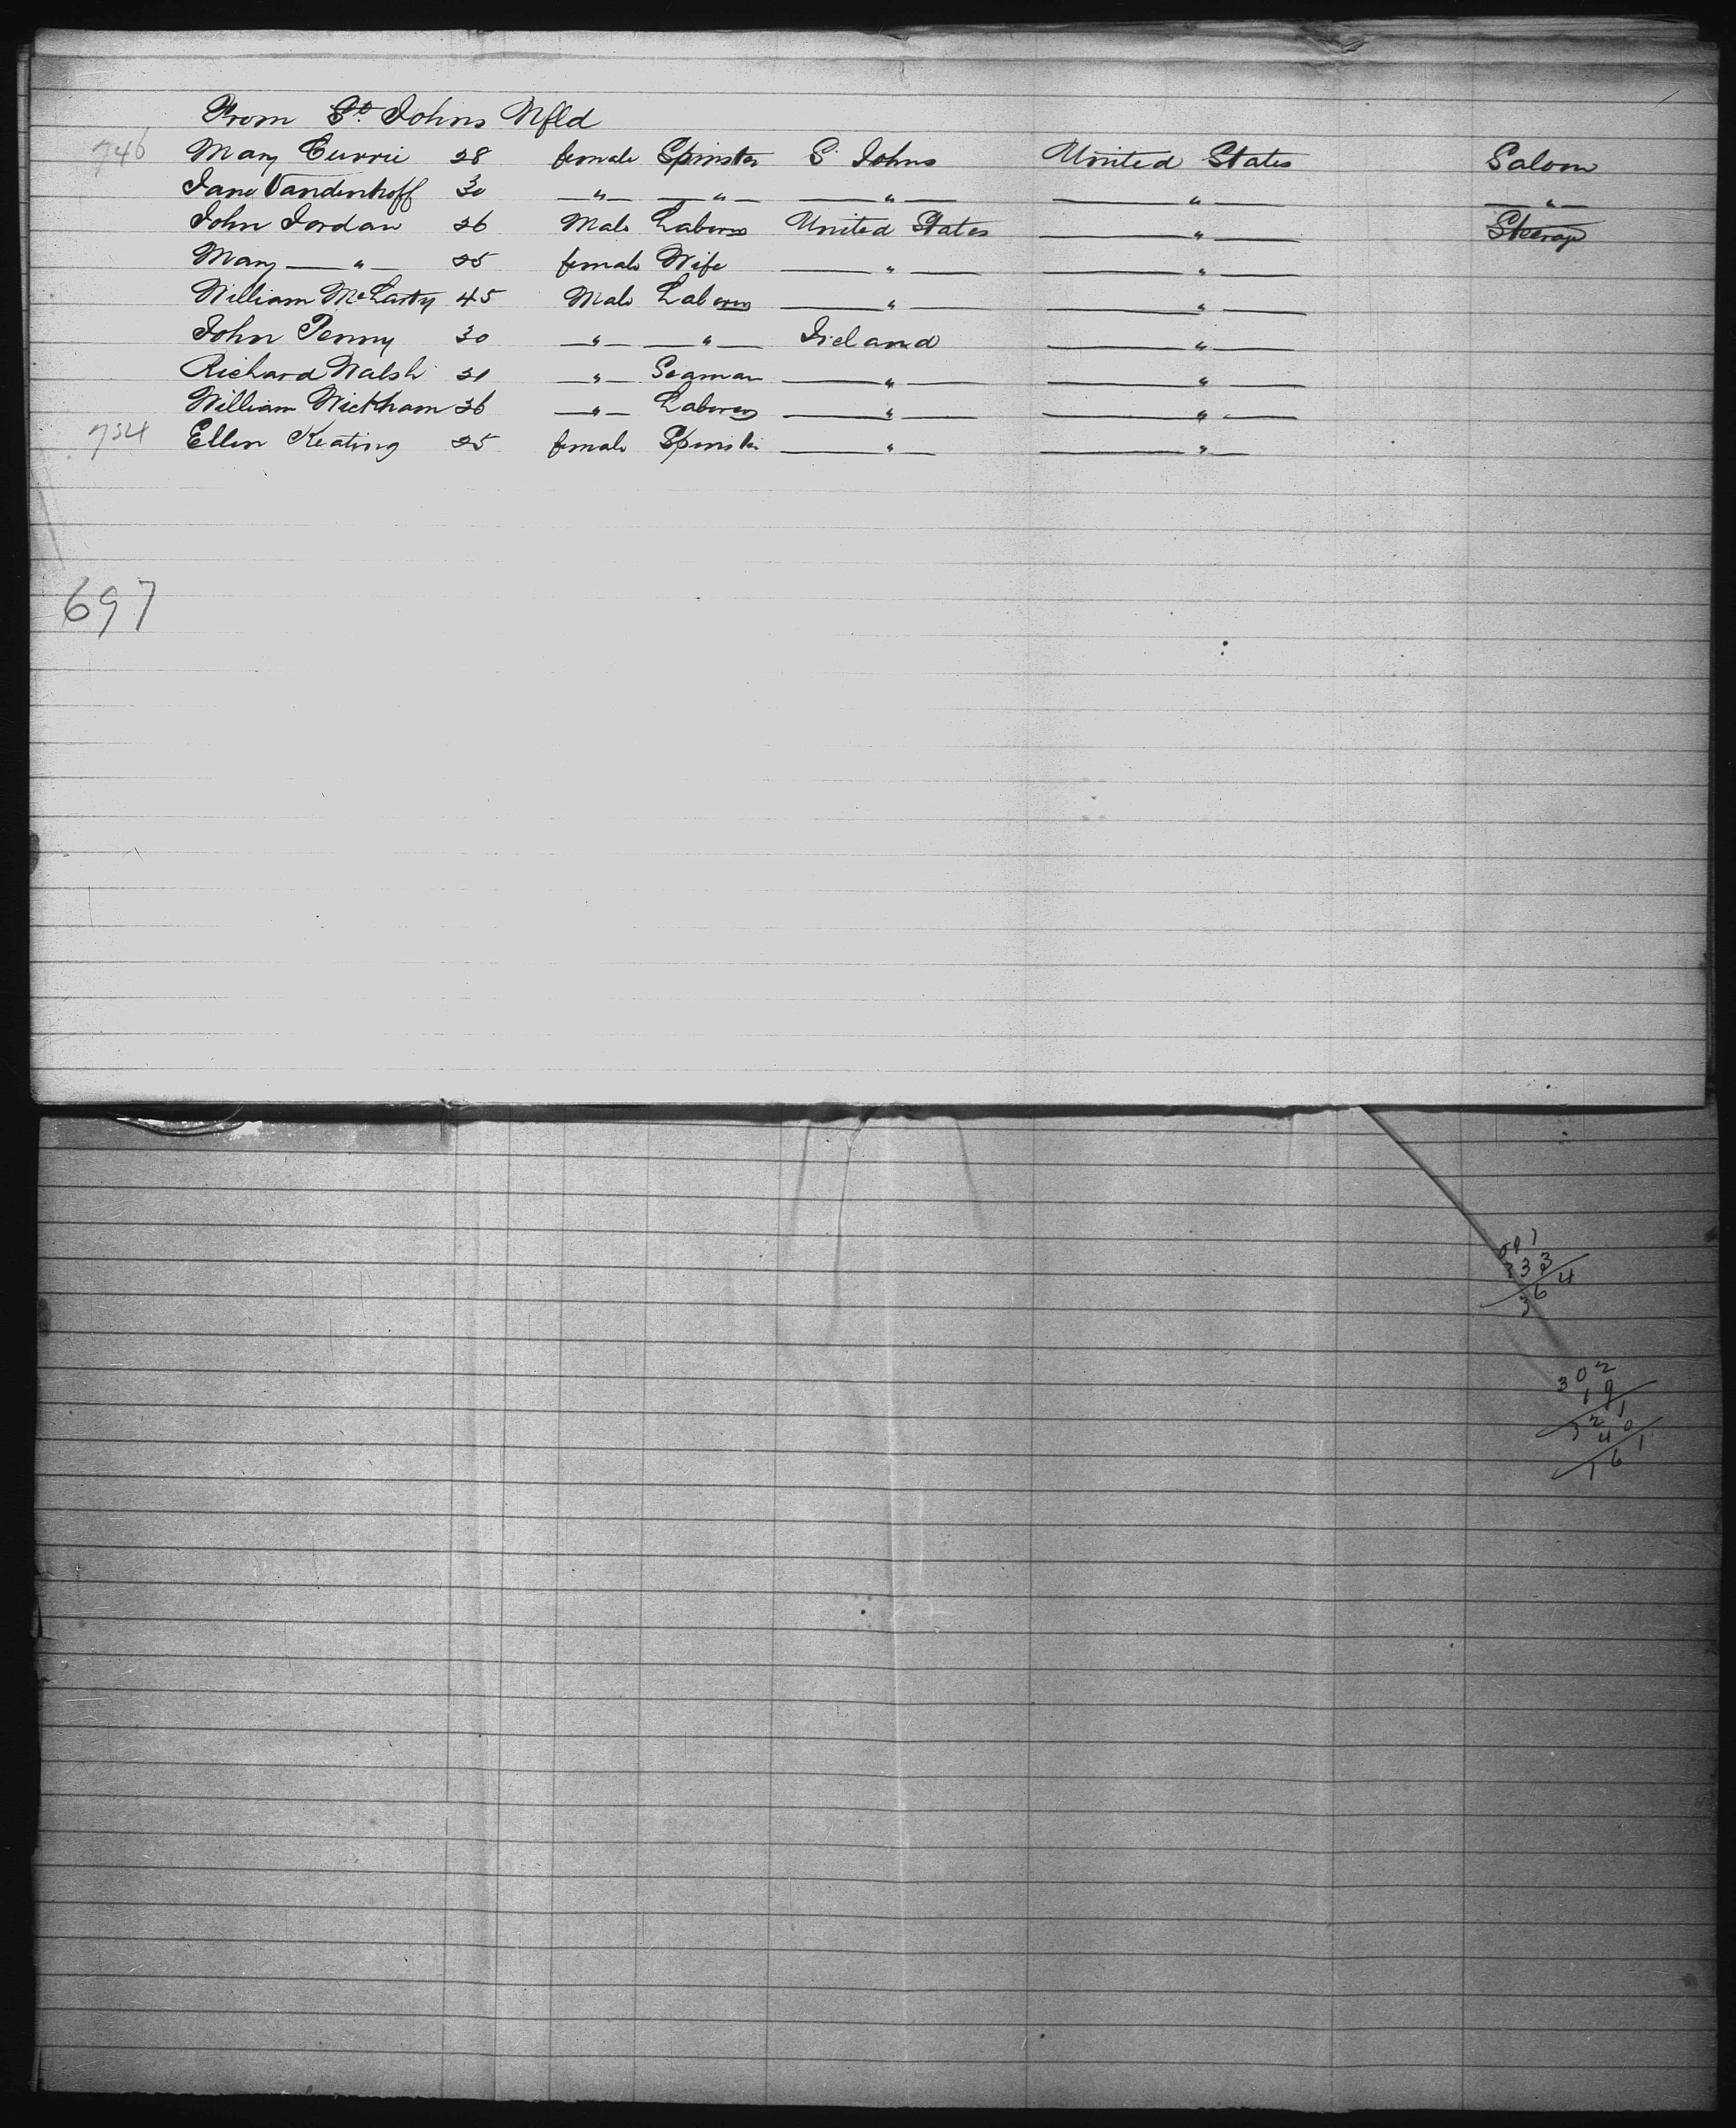 From St. Johns Nfld
746 Mary Currie 28 female Spinster S. Johns United States Saloon
Jane Vandenhoff 30 —"— —"— —"— —"— —"—
John Jordan 26 Male Laborer United States —"— Steerage
Mary —"— 25 female Wife —"— —"—
William McCarty 45 Male Laborer —"— —"—
John Penny 30 —"— —"— Ireland —"—
Richard Walsh 21 —"— Seaman —"— —"—
William Wickham 36 —"— Laborer —"— —"—
754 Ellen Keating 25 female Spinster —"— —"—
697
333
364
302
19
321
40
161